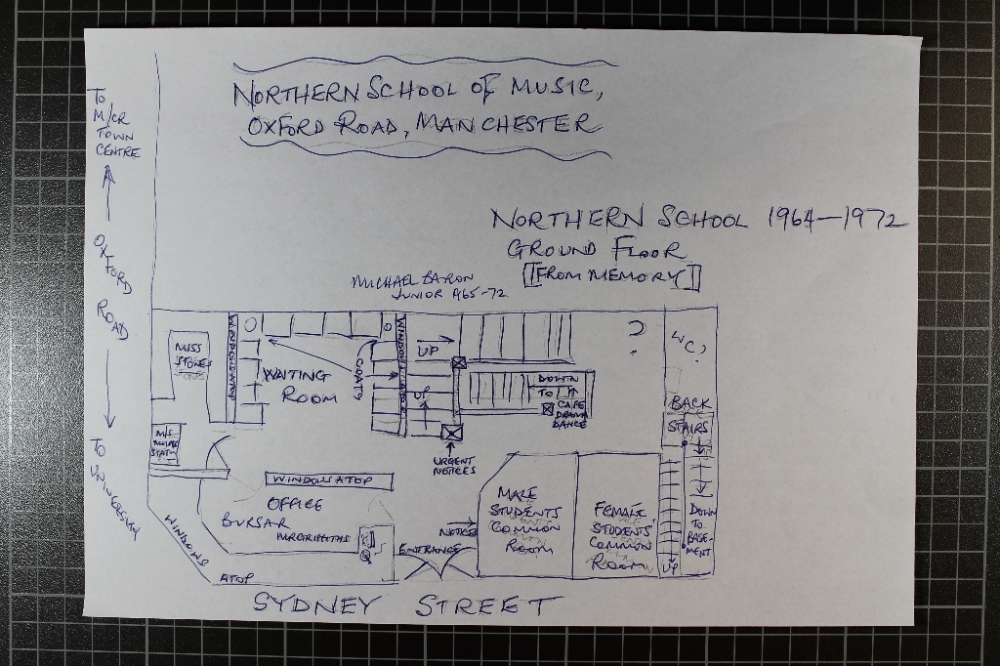 NORTHERN SCHOOL OF MUSIC,
OXFORD ROAD, MANCHESTER
TO
M/CR
TOWN
CENTRE
OXFORD
ROAD
TO
UNIVERSITY
NORTHERN SCHOOL 1964—1972
GROUND FLOOR
[[FROM MEMORY]]
MICHAEL BARON
JUNIOR 1965-72
MISS
STONES
WINDOW ATOP
WAITING
ROOM
COATS
WINDOW ATOP
UP
UP
DOWN
TO
CAFE
DRAMA
DANCE
URGENT
NOTICES
?
W.C.?
BACK
STAIRS
DOWN
TO
BASE-
MENT
UP
WINDOW ATOP
OFFICE
BURSAR
MR GRIFFITHS
WINDOWS
ATOP
ENTRANCE
NOTICE
MALE
STUDENTS
COMMON
ROOM
FEMALE
STUDENTS
COMMON
ROOM
SYDNEY STREET